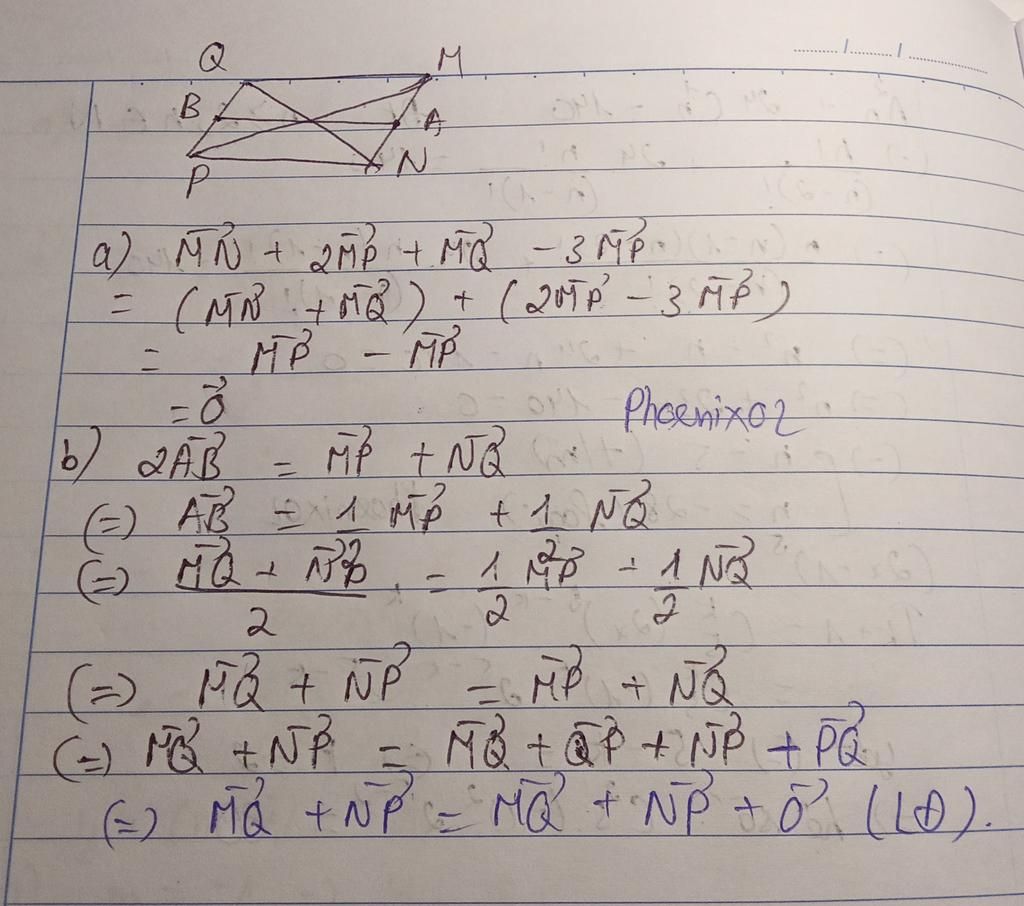 Q M
B A
P N
a) \vec{MN} + 2\vec{MP} + \vec{MQ} - 3\vec{MP}
= (\vec{MN} + \vec{MQ}) + (2\vec{MP} - 3\vec{MP})
= \vec{MP} - \vec{MP}
= \vec{0}
Phoenix02
b) 2\vec{AB} = \vec{MP} + \vec{NQ}
(=) \vec{AB} = \frac{1}{2} \vec{MP} + \frac{1}{2} \vec{NQ}
(=) \frac{\vec{MQ} + \vec{NP}}{2} = \frac{1}{2} \vec{MP} + \frac{1}{2} \vec{NQ}
(=) \vec{MQ} + \vec{NP} = \vec{MP} + \vec{NQ}
(=) \vec{MQ} + \vec{NP} = \vec{MQ} + \vec{QP} + \vec{NP} + \vec{PQ}
(=) \vec{MQ} + \vec{NP} = \vec{MQ} + \vec{NP} + \vec{0} (LĐ).